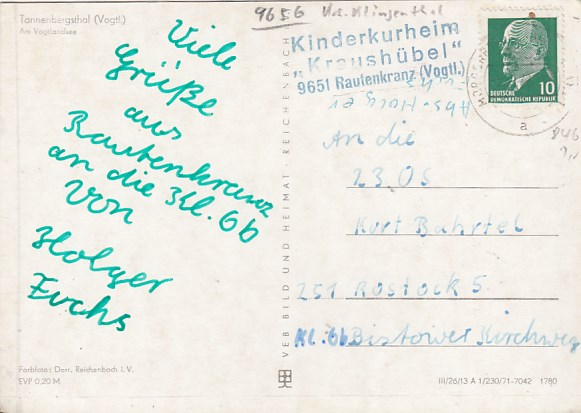 Tannenbergsthal (Vogtl.)
Am Vogtlandsee
Viele
Grüße
aus
Rautenkranz
an die Kl. 6b
von
Holger
Fuchs
Farbfoto: Darr, Reichenbach i. V.
EVP 0,20 M
VEB BILD UND HEIMAT · REICHENBACH
9656 Klingenthal
Kinderkurheim
„Kraushübel"
9651 Rautenkranz (Vogtl.)
DEUTSCHE
DEMOKRATISCHE REPUBLIK
10
a
Abs. Holger
Fuchs
An die
23. OS
Kurt Bahrtel
251 Rostock 5
Kl. 6b Bistower Kirchweg
III/26/13 A 1/230/71-7042 1780